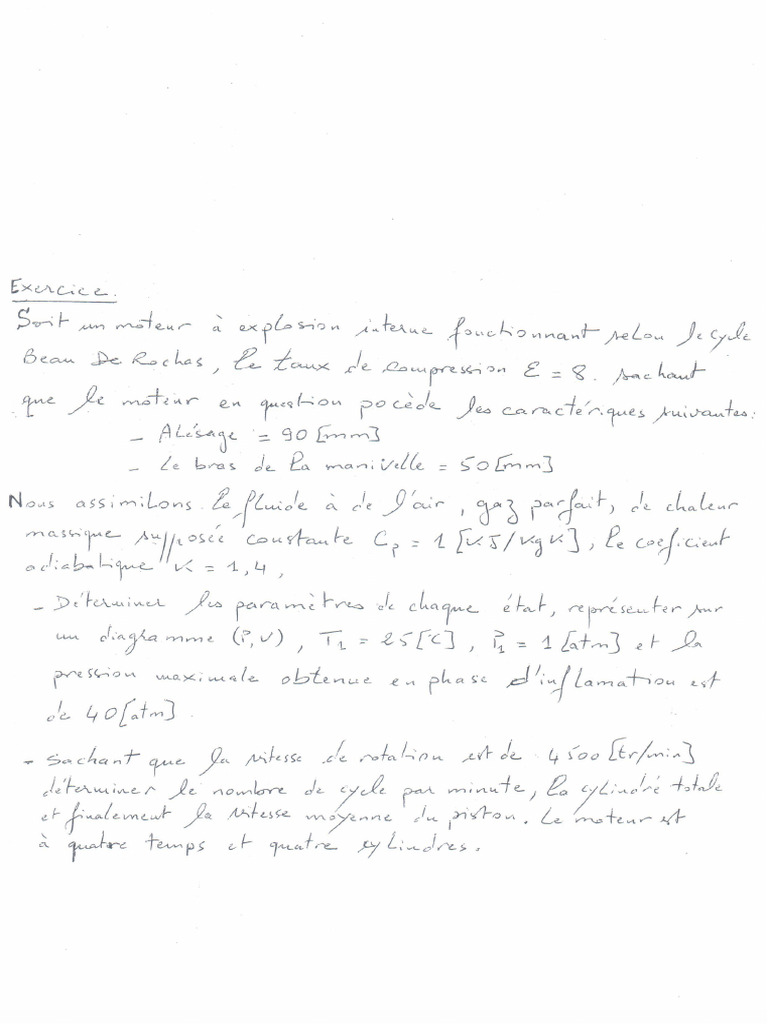 Exercice.
Soit un moteur à explosion interne fonctionnant selon le cycle
Beau De Rochas, le taux de compression ε = 8. sachant
que le moteur en question pocède les caractériques suivantes:
- Alésage = 90 [mm]
- Le bras de la manivelle = 50 [mm]
Nous assimilons le fluide à de l'air, gaz parfait, de chaleur
massique supposée constante Cp = 1 [KJ/KgK], le coeficient
adiabatique K = 1,4,
- Déterminer les paramètres de chaque état, représenter sur
un diagramme (P,V), T1 = 25 [°C], P1 = 1 [atm] et la
pression maximale obtenue en phase d'inflamation est
de 40 [atm]
- Sachant que la vitesse de rotation est de 4500 [tr/min]
déterminer le nombre de cycle par minute, la cylindré totale
et finalement la vitesse moyenne du piston. Le moteur est
à quatre temps et quatre cylindres.